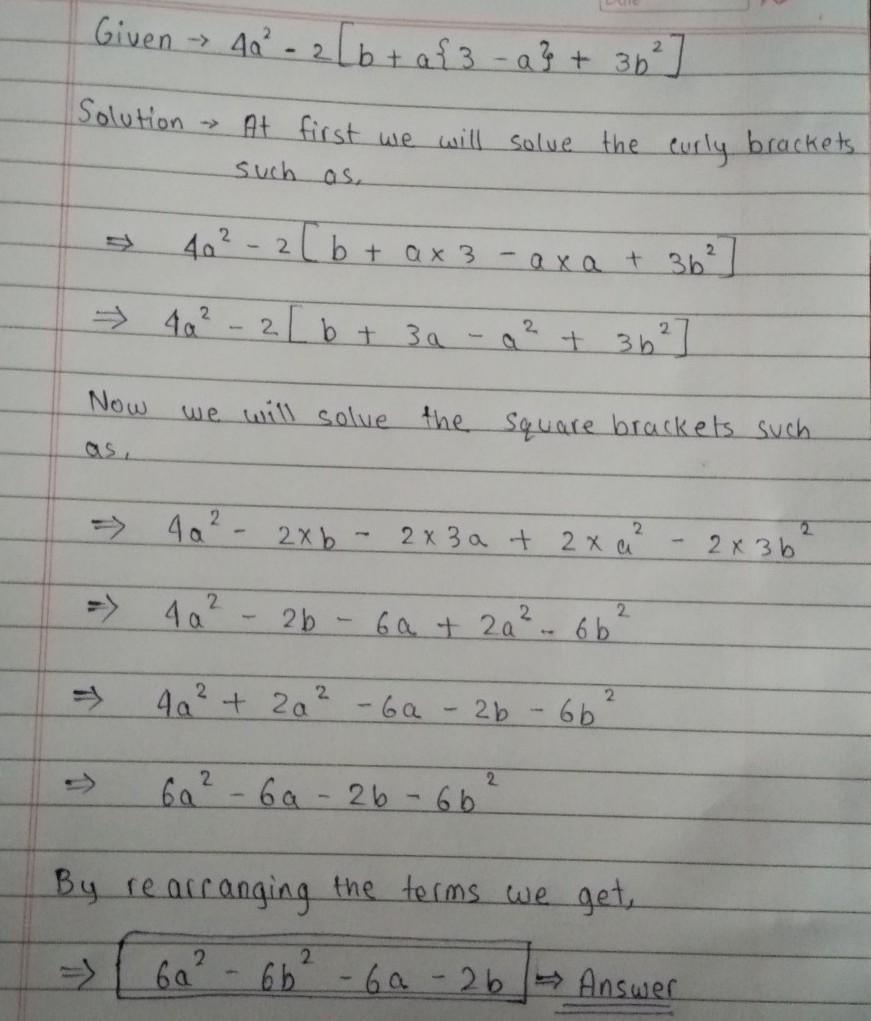 Given → 4a² - 2[b + a{3 - a} + 3b²]
Solution → At first we will solve the curly brackets
such as,
⇒ 4a² - 2[b + a × 3 - a × a + 3b²]
⇒ 4a² - 2[b + 3a - a² + 3b²]
Now we will solve the square brackets such
as,
⇒ 4a² - 2×b - 2×3a + 2×a² - 2×3b²
⇒ 4a² - 2b - 6a + 2a² - 6b²
⇒ 4a² + 2a² - 6a - 2b - 6b²
⇒ 6a² - 6a - 2b - 6b²
By rearranging the terms we get,
⇒ 6a² - 6b² - 6a - 2b ⇒ Answer